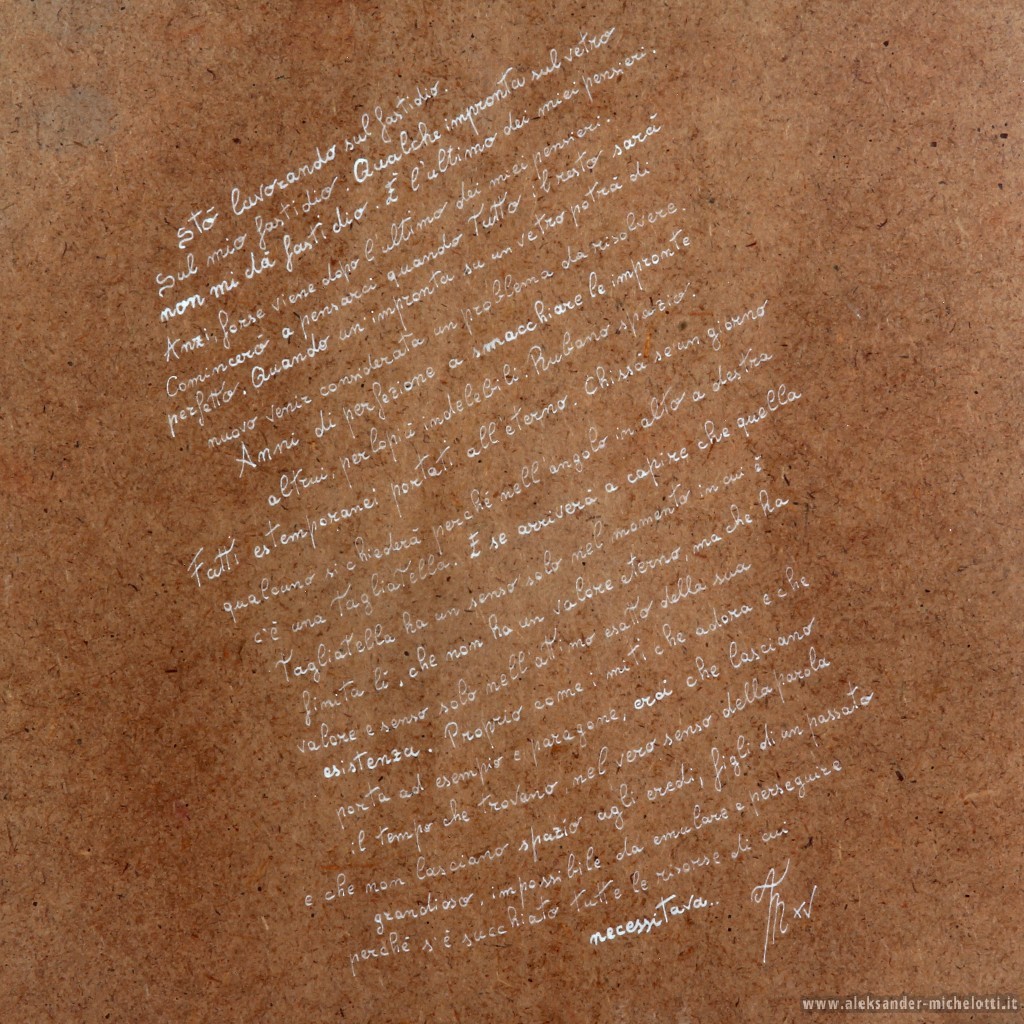 Stò lavorando sul fastidio.
Sul mio fastidio. Qualche impronta sul vetro
non mi dà fastidio. È l'ultimo dei miei pensieri.
Anzi, forse viene dopo l'ultimo dei miei pensieri..
Comincerò a pensarci quando tutto il resto sarà
perfetto. Quando un'impronta su un vetro potrà di
nuovo venir considerata un problema da risolvere.
Anni di perfezione a smacchiare le impronte
altrui, perlopiù indelebili. Rubano spazio.
Fatti estemporanei portati all'eterno. Chissà se un giorno
qualcuno si chiederà perché nell'angolo in alto a destra
c'è una tagliatella. E se arriverà a capire che quella
tagliatella ha un senso solo nel momento in cui è
finita lì, che non ha un valore eterno, ma che ha
valore e senso solo nell'attimo esatto della sua
esistenza. Proprio come i miti che adora e che
porta ad esempio e paragone, eroi che lasciano
il tempo che trovano nel vero senso della parola
e che non lasciano spazio agli eredi, figli di un passato
grandioso, impossibile da emulare e perseguire
perché s'è succhiato tutte le risorse di cui
necessitava..
AM XV
www.aleksander-michelotti.it